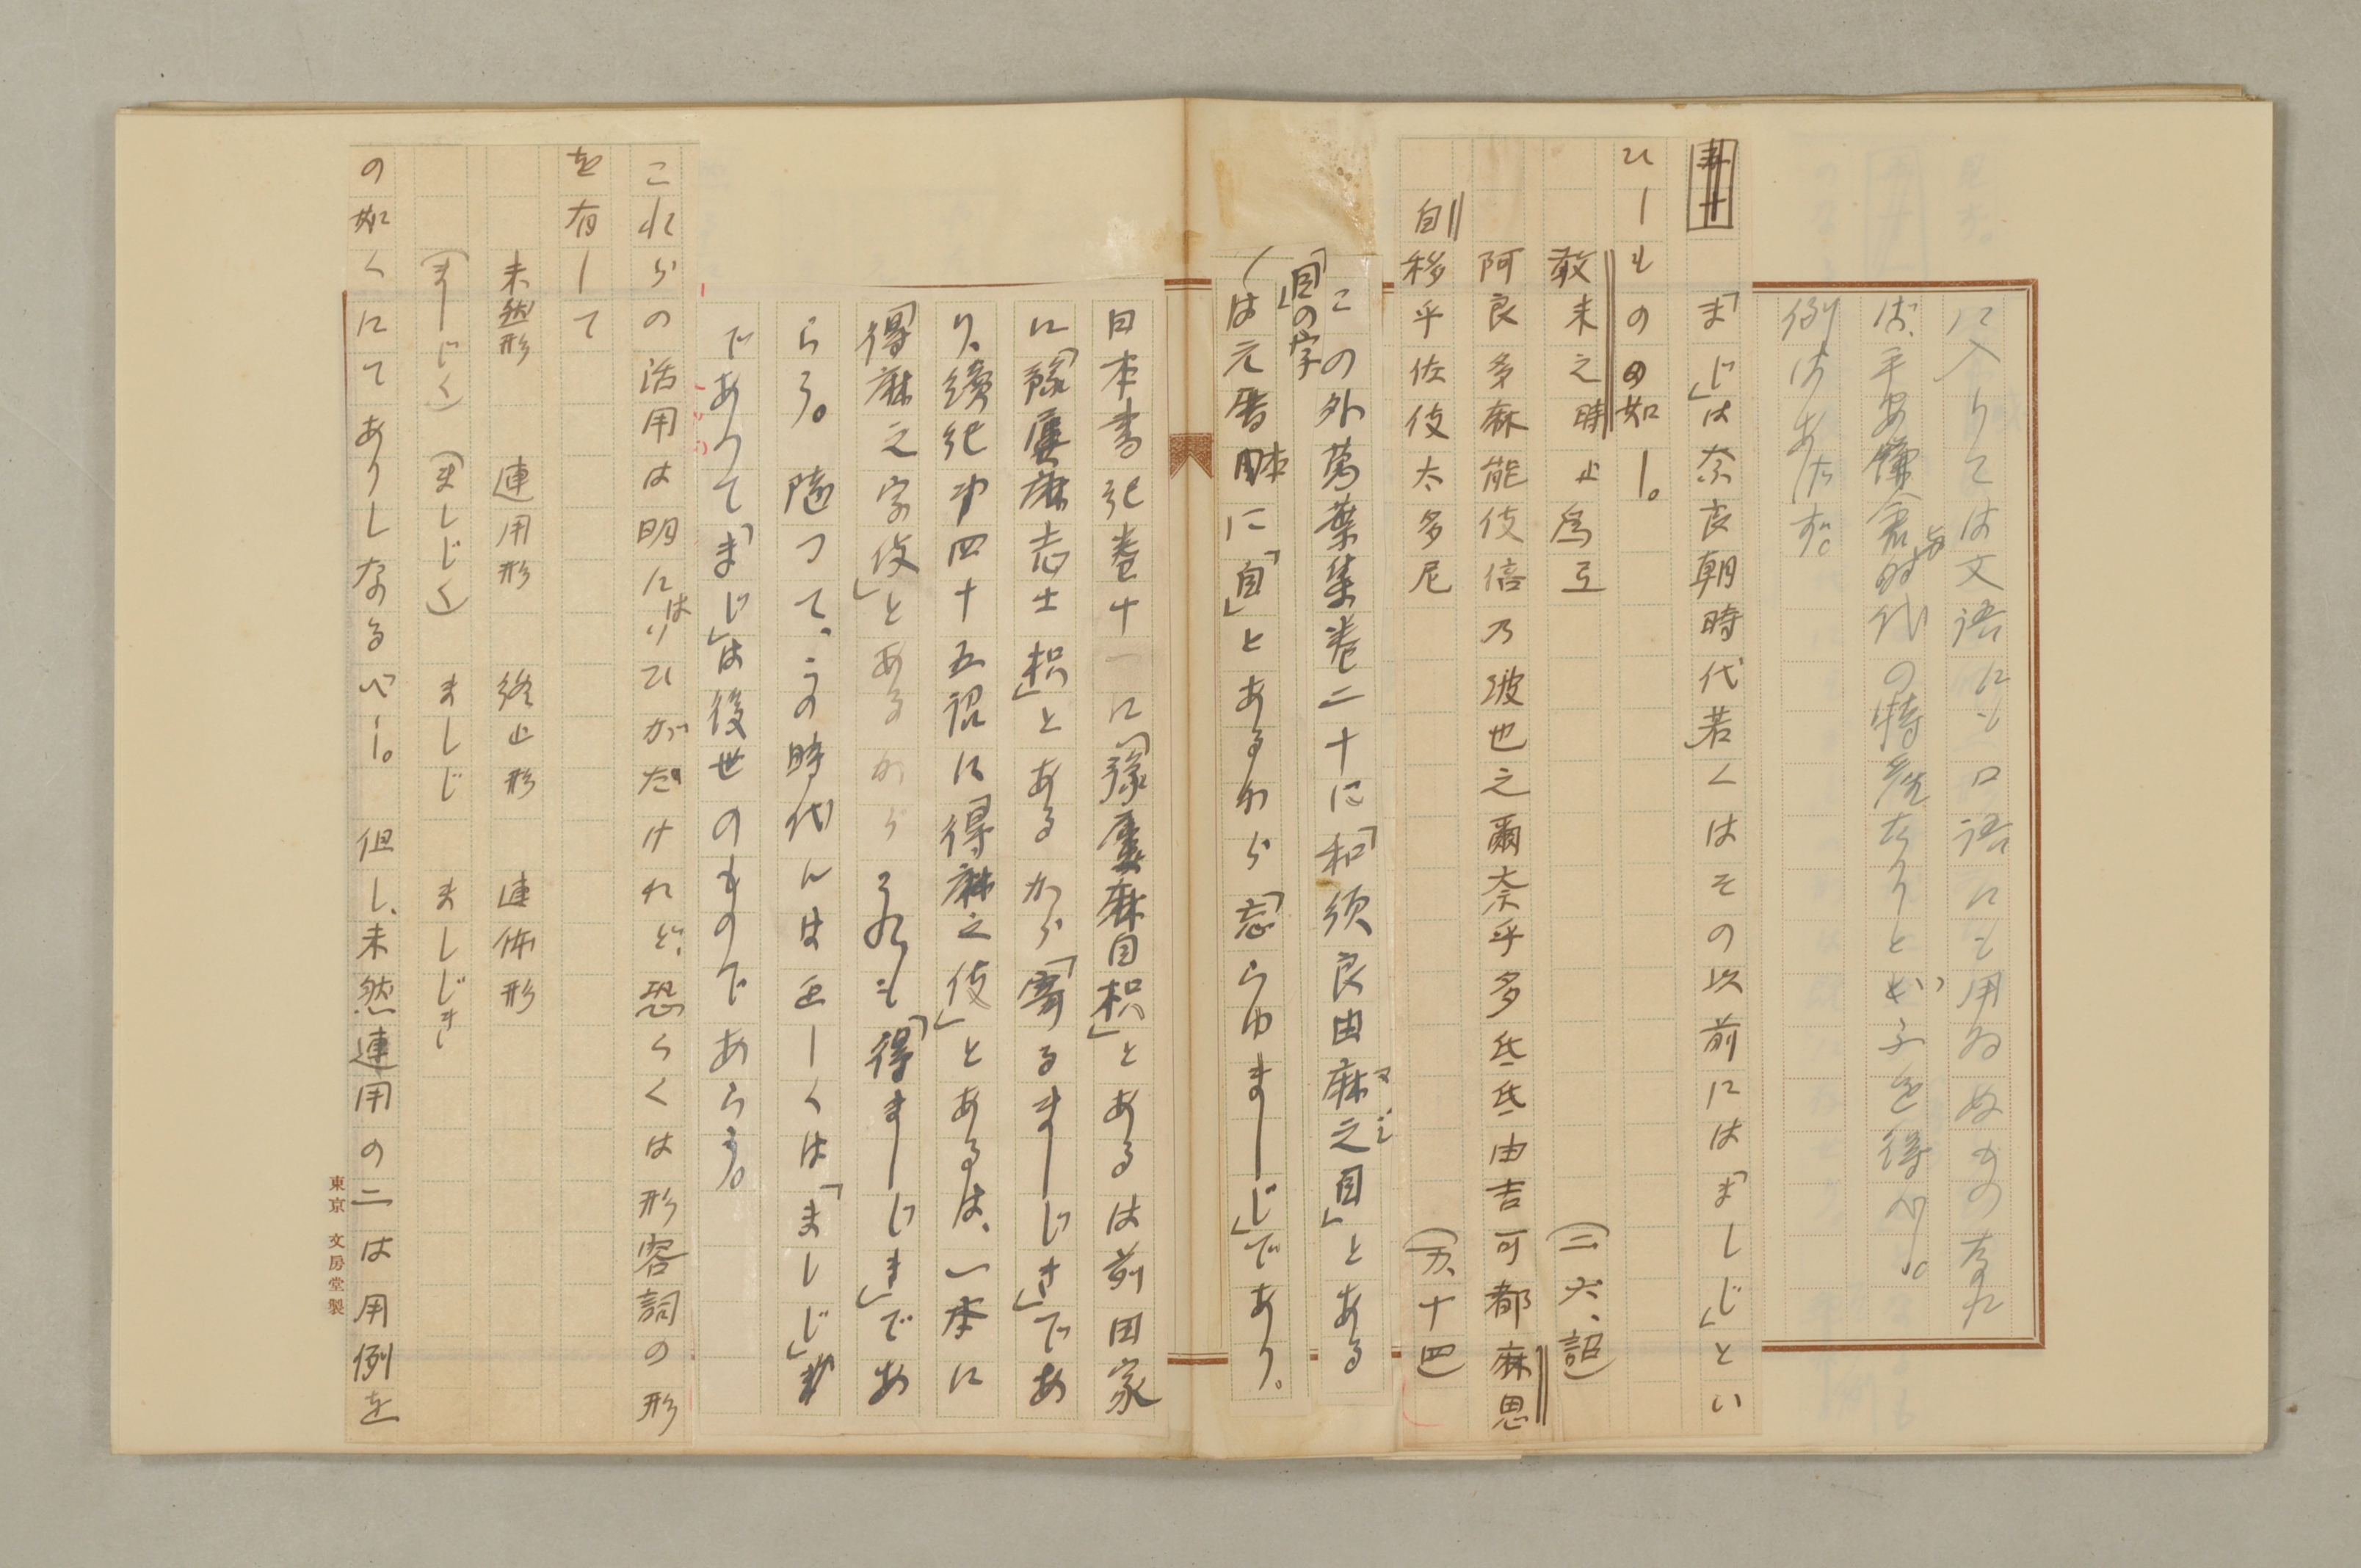 に入りては文語にも口語にも用ゐぬもの なれ
ば、平安鎌倉時代の特産なりといふを得べし。
例はあらず。
「まじ」は奈良朝時代若くはその以前には「ましじ」とい
ひしものの如し。
敢未之時止為弖 (二六、詔)
阿良多麻能伎倍乃波也之爾奈乎多氐氐由吉可都麻思
自移乎佐伎太多尼 (万、十四)
この外萬葉集巻二十に「和須良由麻之自」とある
マシ
「自」の字
は元暦本に「自」とあるから「忘らゆましじ」であり。
日本書紀巻十一に「豫屢麻自枳」とあるは前田家
に「豫屢麻志士枳」とあるから「寄るましじき」であ
り、續紀第四十五詔に「得麻之伎」とあるは、一本に
「得麻之字伎」とあるから それも「得ましじき」であ
らう。 随つて、この時代には正しくは「ましじ」
であつて「まじ」は後世のものであらう。
これらの活用は明にはいひがたけれど、恐らくは形容詞の形
を有して
未然形 連用形 終止形 連体形
(ましじく) (ましじく) ましじ ましじき
の如くにてありしなるべし。 但し、未然連用の二は用例を
東京 文房堂製